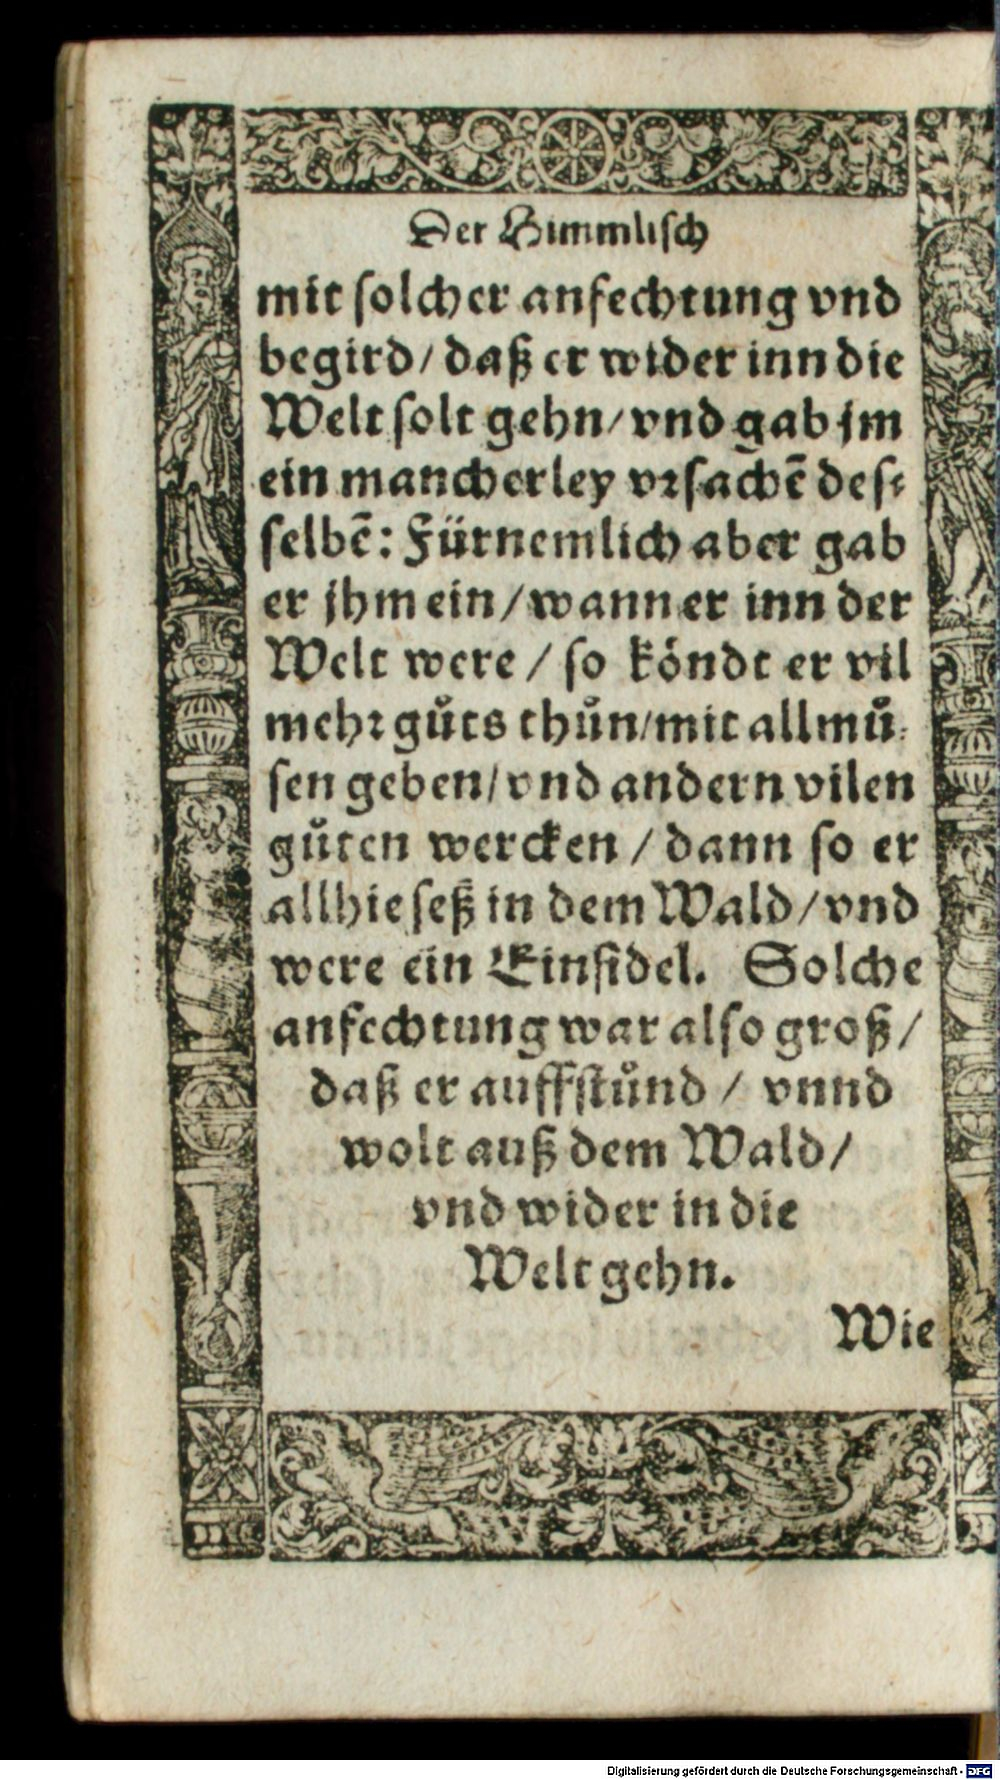 Der Himmlisch
mit ſolcher anfechtung vnd
begird/ daß er wider inn die
Welt ſolt gehn/ vnd gab jm
ein mancherley vꝛſachẽ deſ⸗
ſelbẽ: Fürnemlich aber gab
er jhm ein/ wann er inn der
Welt were/ ſo köndt er vil
mehꝛ gůts thůn/ mit allmů⸗
ſen geben/ vnd andern vilen
gůten wercken/ dann ſo er
allhie ſeß in dem Wald/ vnd
were ein Einſidel. Solche
anfechtung war alſo groß/
daß er auffſtůnd/ vnnd
wolt auß dem Wald/
vnd wider in die
Welt gehn.
Wie
Digitalisierung gefördert durch die Deutsche Forschungsgemeinschaft - DFG